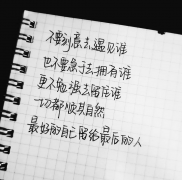 不要刻意去遇见谁
也不要急于去拥有谁
更不勉强去留住谁
一切都顺其自然
最好的自己留给最后的人